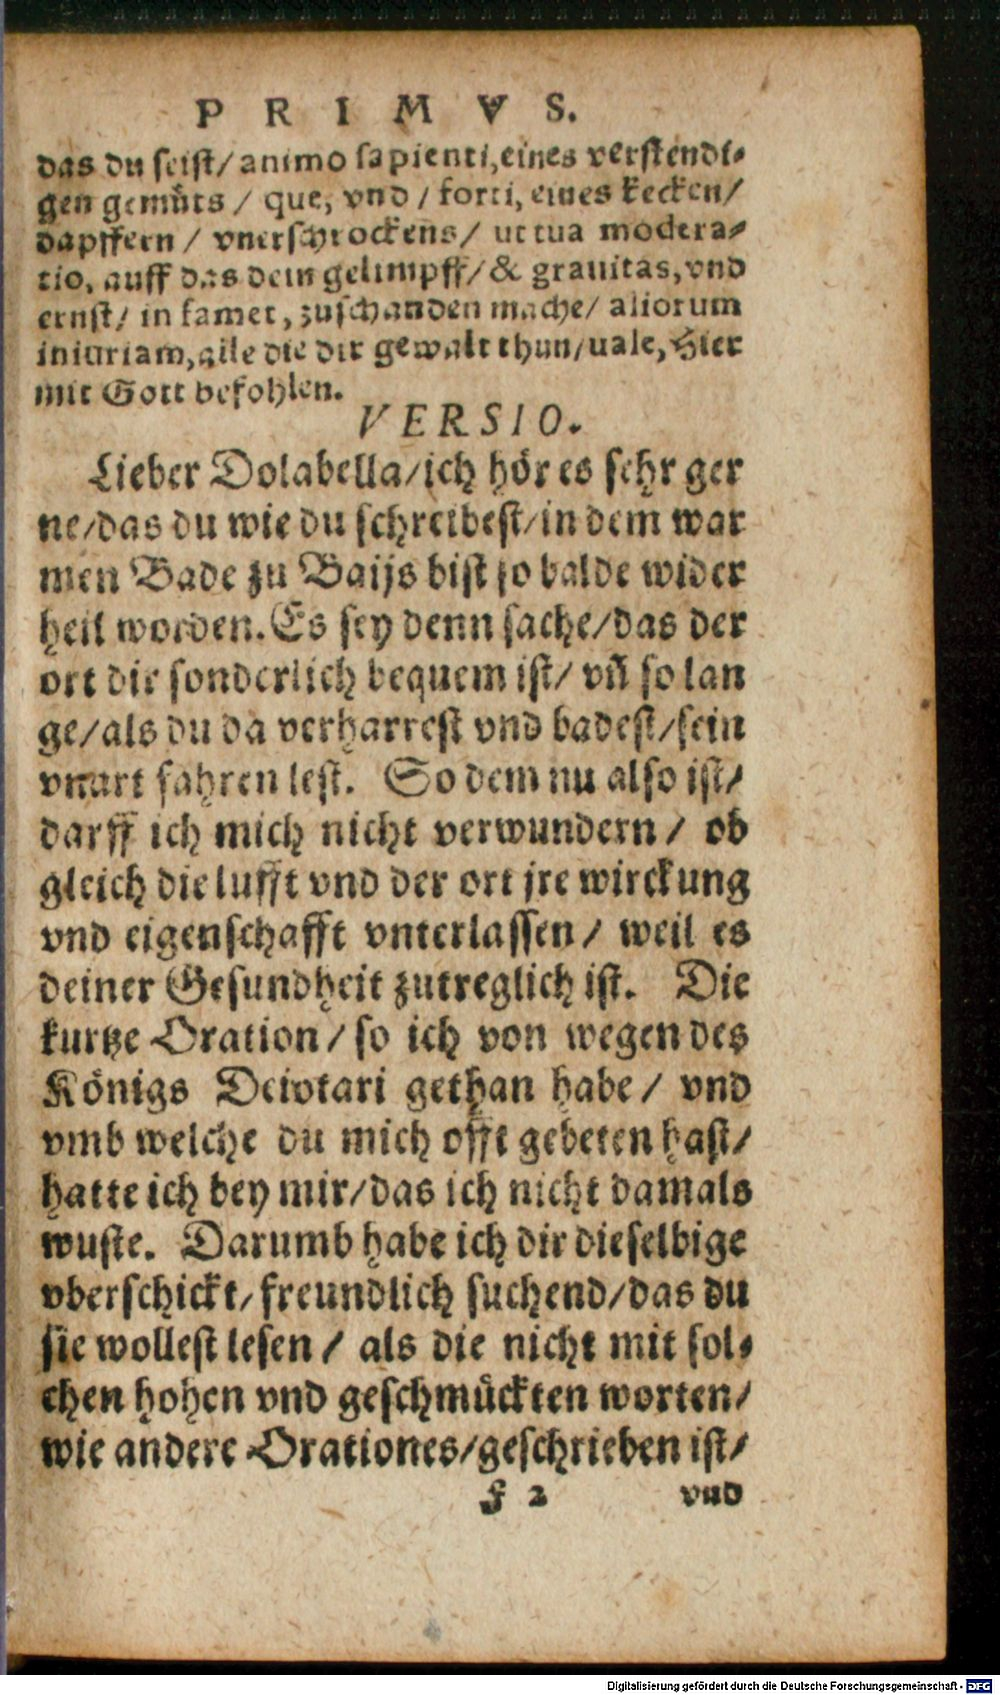 PRIMVS.
das du seist/ animo sapienti, eines verstendi-
gen gemüts/ que, vnd/ forti, eines kecken/
dapffern/ vnerschrockens/ ut tua modera-
tio, auff das dein gelimpff/ & grauitas, vnd
ernst/ in famet, zuschanden mache/ aliorum
iniuriam, alle die dir gewalt thun/ uale, Hier
mit Gott befohlen.
VERSIO.
Lieber Dolabella/ich hör es sehr ger
ne/das du wie du schreibest/in dem war
men Bade zu Baijs bist so balde wider
heil worden. Es sey denn sache/das der
ort dir sonderlich bequem ist/ vñ so lan
ge/als du da verharrest vnd badest/sein
vnart fahren lest. So dem nu also ist/
darff ich mich nicht verwundern/ ob
gleich die lufft vnd der ort jre wirckung
vnd eigenschafft vnterlassen/ weil es
deiner Gesundheit zutreglich ist. Die
kurtze Oration/ so ich von wegen des
Königs Deiotari gethan habe/ vnd
vmb welche du mich offt gebeten hast/
hatte ich bey mir/das ich nicht damals
wuste. Darumb habe ich dir dieselbige
vberschickt/freundlich suchend/das du
sie wollest lesen/ als die nicht mit sol-
chen hohen vnd geschmückten worten/
wie andere Orationes/geschrieben ist/
f 2 vnd
Digitalisierung gefördert durch die Deutsche Forschungsgemeinschaft - DFG